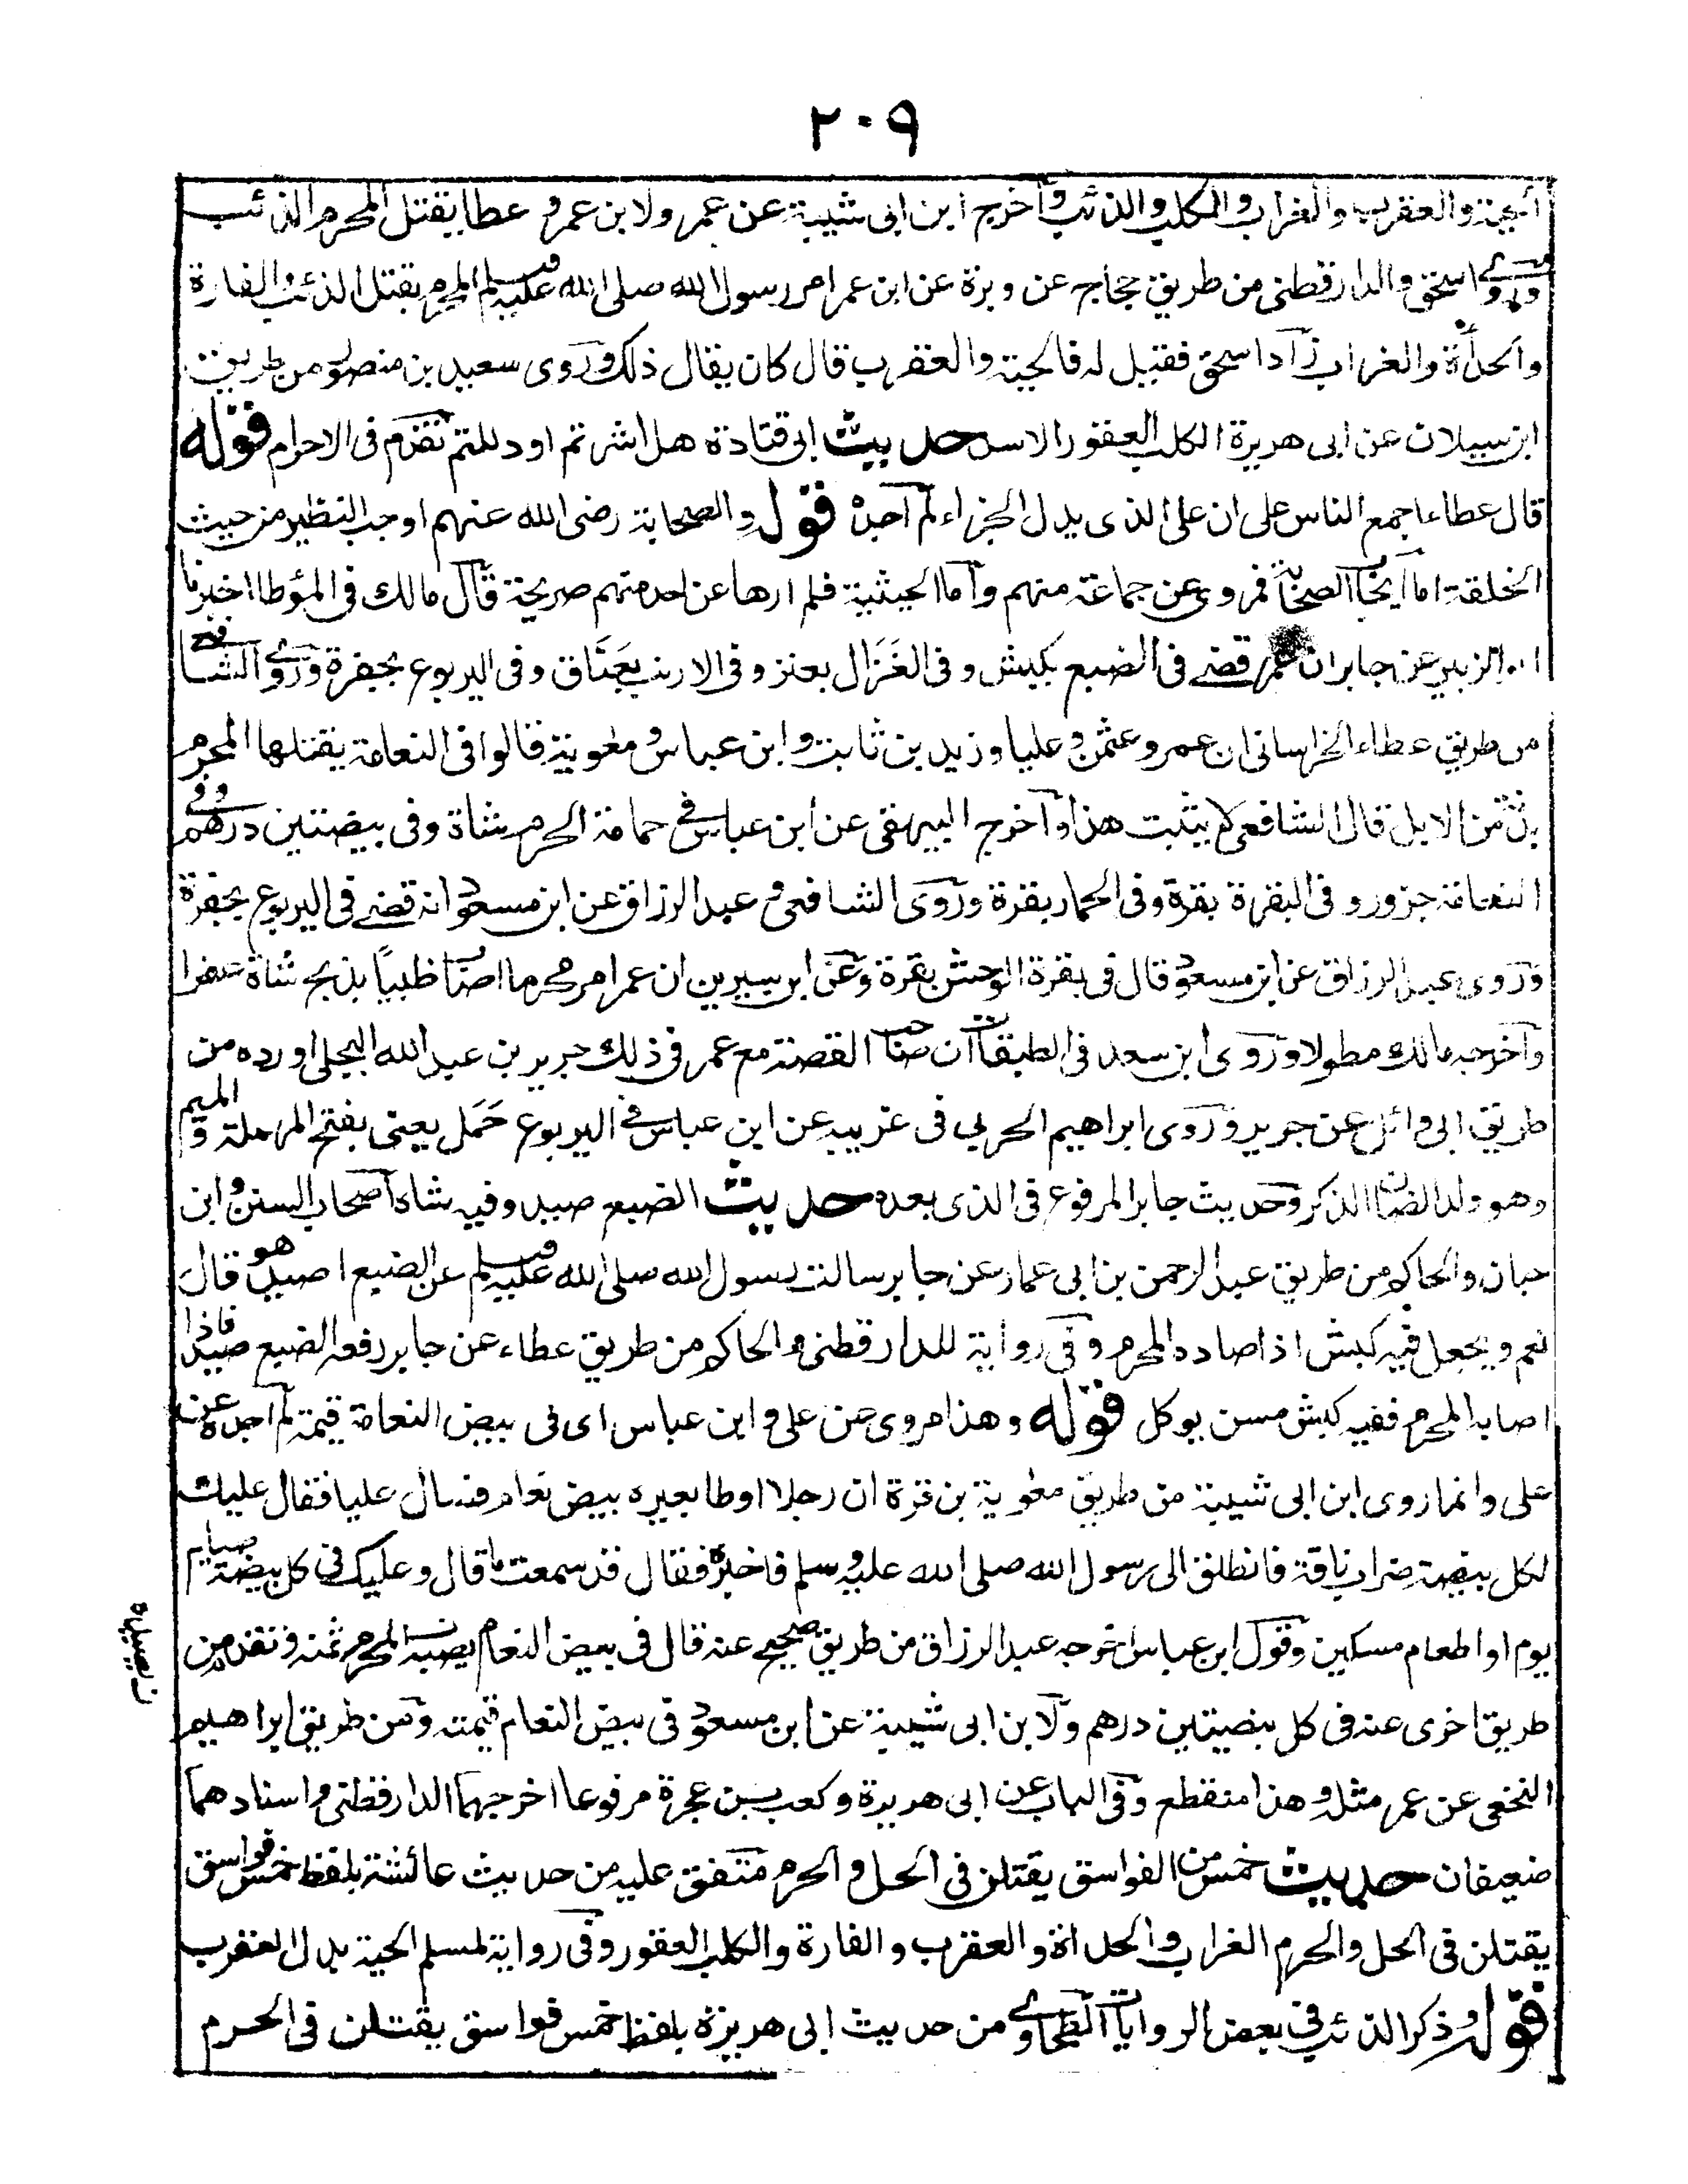 ٢٠٩
الحية والعقرب والغراب والكلب والذئب وأخرج ابن ابى شيبة عن عمر ولابن عمر و عطا يقتل المحرم الذئب
وروى اسحق والدارقطنى من طريق حجاج عن وبرة عن ابن عمر امر رسول الله صلى الله عليه وسلم المحرم بقتل الذئب والفارة
والحدأة والغراب زاد اسحق فقيل له فالحية والعقرب قال كان يقال ذلك وروى سعيد بن منصور من طريق
ابن سيلان عن ابى هريرة الكلب العقور الاسد حديث ابى قتادة هل اشرتم او دللتم تقدم فى الاحرام قوله
قال عطاء اجمع الناس على ان على الذى يدل الجزاء لم اجده قوله والصحابة رضى الله عنهم اوجب النظير من حيث
الخلقة اما ايجاب الصحابة فمروى عن جماعة منهم وأما الحيثية فلم ارها عن احد منهم صريحة قال مالك فى المؤطا اخبرنا
ابو الزبير عن جابر ان عمر قضى فى الضبع بكبش وفى الغَزَال بعنز وفى الارنب بعَنَاق وفى اليربوع بجفرة وروى الشافعى
من طريق عطاء الخراسانى ان عمر وعثمن وعليا وزيد بن ثابت وابن عباس ومعوية قالوا فى النعامة يقتلها المحرم
بدنة من الابل قال الشافعى لا يثبت هذا وأخرج البيهقى عن ابن عباس فى حمامة الحرم شاة وفى بيضتين درهم وفى
النعامة جزور وفى البقرة بقرة وفى الحمار بقرة وروى الشافعى و عبد الرزاق عن ابن مسعود انه قضى فى اليربوع بجفرة
وروى عبد الرزاق عن ابن مسعود قال فى بقرة الوحش بقرة وعن ابن سيرين ان عمر امر محرما اصاب ظبياً بذبح شاة عفرا
وأخرجه مالك مطولا وروى ابن سعد فى الطبقات ان صاحب القصة مع عمر فى ذلك جرير بن عبد الله البجلى اورده من
طريق ابى وائل عن جرير وروى ابراهيم الحربى فى غريبه عن ابن عباس فى اليربوع حَمَل يعنى بفتح المهملة و الميم
وهو ولد الضان الذكر وحديث جابر المرفوع فى الذى بعده حديث الضبع صيد وفيه شاه أصحاب السنن وابن
حبان والحاكم من طريق عبد الرحمن بن ابى عمار عن جابر سالت رسول الله صلى الله عليه وسلم عن الضبع اصيد هو قال
نعم ويجعل فيه كبش اذا صاده المحرم وفى رواية للدارقطنى والحاكم من طريق عطاء عن جابر رفعه الضبع صيد فاذا
اصابه المحرم ففيه كبش مسن يوكل قوله وهذا مروى عن على وابن عباس اى فى بيض النعامة قيمة لم اجده عن
على وانما روى ابن ابى شيبة من طريق معوية بن قرة ان رجلا اوطا بعيره بيض نعام فسال عليا فقال عليك
لكل بيضة ضراب ناقة فانطلق الى رسول الله صلى الله عليه وسلم فاخبره فقال قد سمعت ما قال وعليك فى كل بيضة صيام
يوم او اطعام مسكين وقول ابن عباس اخرجه عبد الرزاق من طريق صحيح عنه قال فى بيض النعام يصيبه المحرم ثمنه وتقدم من
ن يصيبه
طريق اخرى عنه فى كل بيضيتين درهم ولابن ابى شيبة عن ابن مسعود فى بيض النعام قيمته ومن طريق ابراهيم
النخعى عن عمر مثله وهذا منقطع وفى الباب عن ابى هريرة وكعب بن عجرة مرفوعا اخرجهما الدارقطنى واسنادهما
ضعيفان حديث خمس من الفواسق يقتلن فى الحل و الحرم متفق عليه من حديث عائشة بلفظ خمس فواسق
يقتلن فى الحل والحرم الغراب والحدأة والعقرب والفارة والكلب العقور وفى رواية لمسلم الحية بدل العقرب
قوله وذكر الذئب فى بعض الروايات الطحاوى من حديث ابى هريرة بلفظ خمس فواسق يقتلن فى الحرم